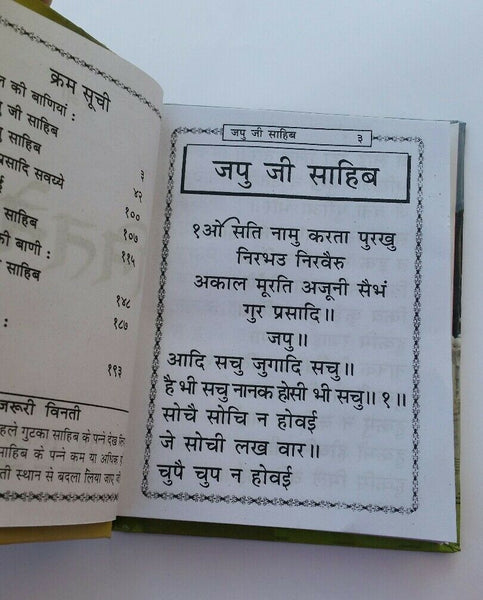 क्रम सूची
की बाणियां :
साहिब
साहिब
प्रसादि सवय्ये
३
४२
१००
साहिब
१०७
की बाणी :
११५
साहिब
१४८
१८७
१९३
जरूरी विनती
गुटका साहिब के पन्ने देख
साहिब के पन्ने कम या अधिक
स्थान से बदला लिया जाए
जपु जी साहिब ३
जपु जी साहिब
१ओं सति नामु करता पुरखु
निरभउ निरवैरु
अकाल मूरति अजूनी सैभं
गुर प्रसादि॥
जपु॥
आदि सचु जुगादि सचु॥
है भी सचु नानक होसी भी सचु॥ १॥
सोचै सोचि न होवई
जे सोची लख वार॥
चुपै चुप न होवई